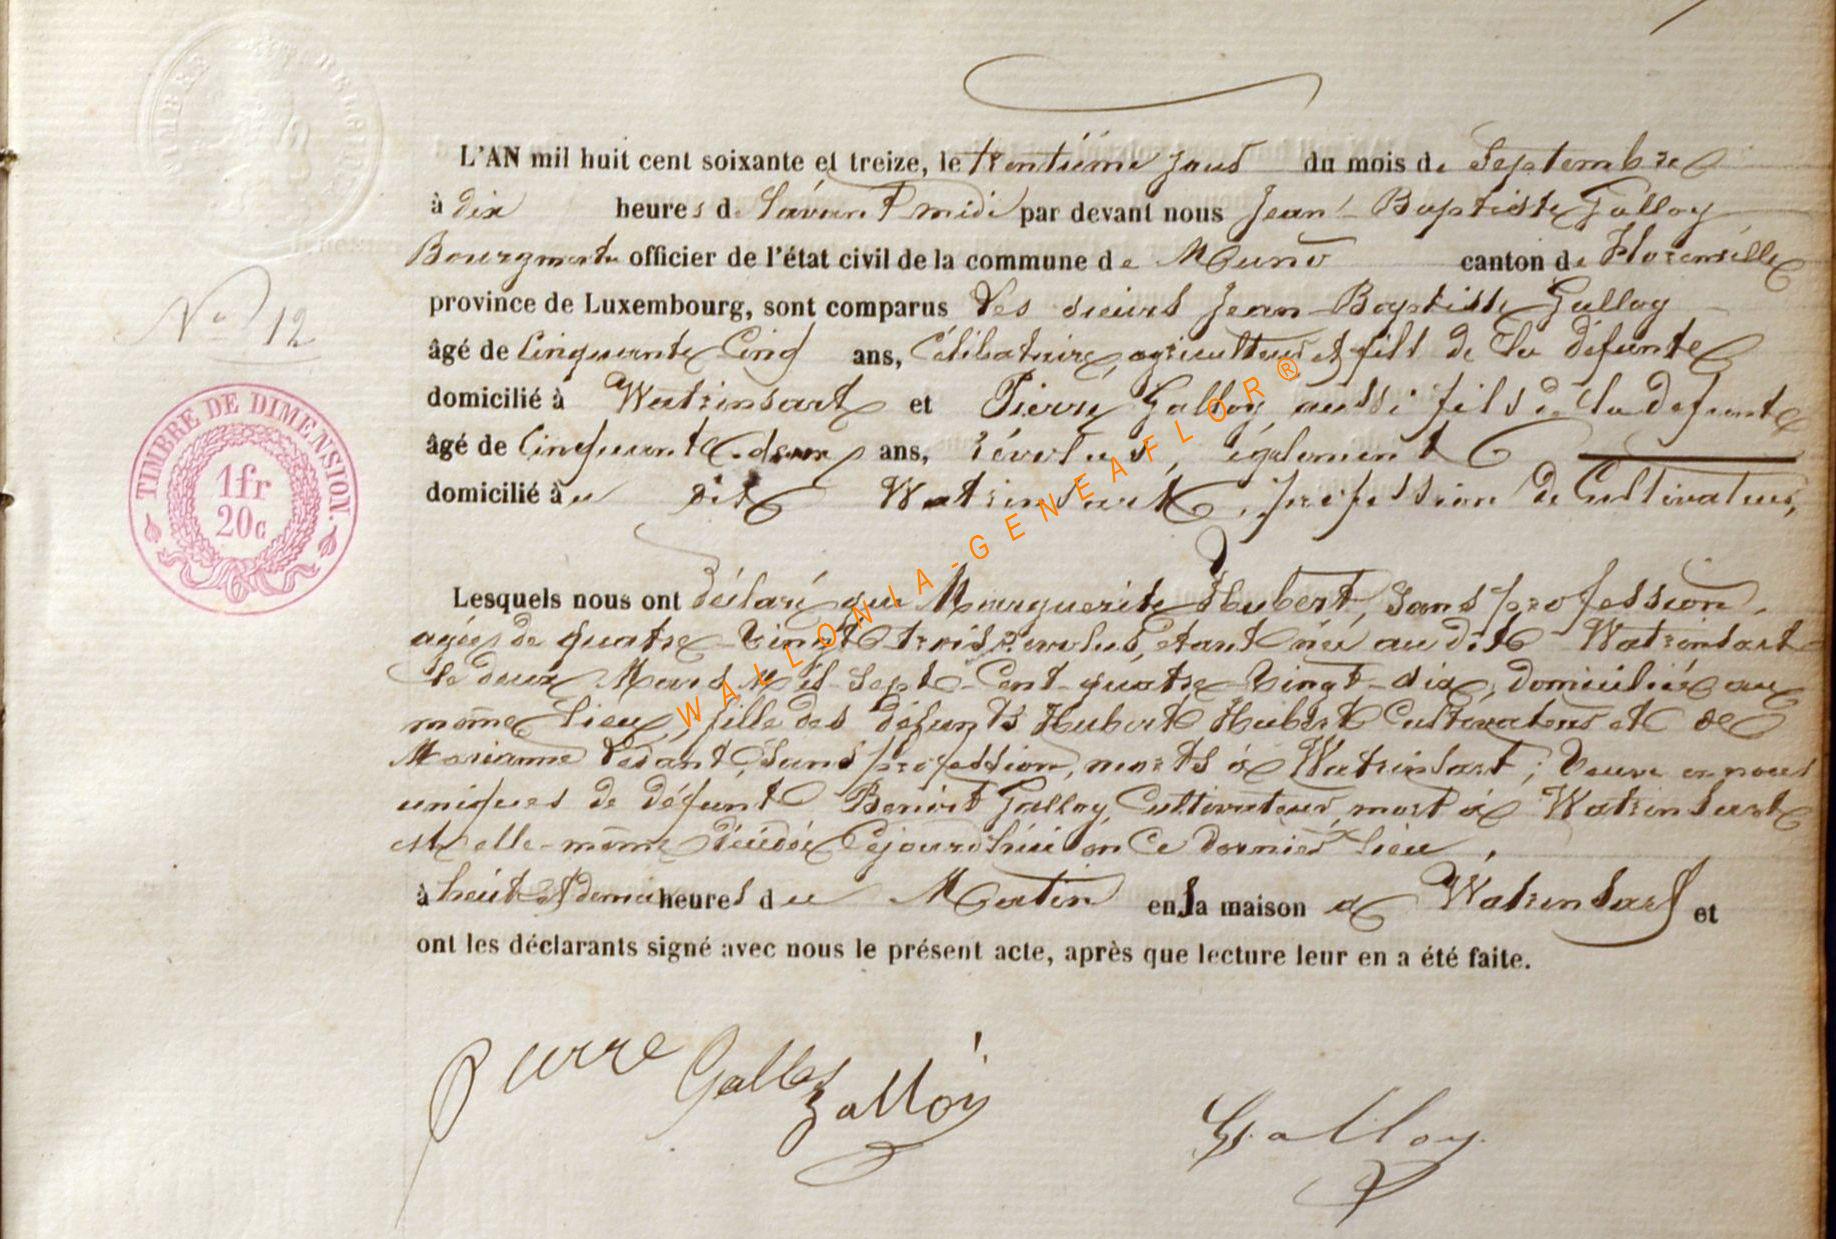 TIMBRE
L'AN mil huit cent soixante et treize, le trentième jour du mois de Septembre
à dix heures de l'avant midi par devant nous Jean-Baptiste Galloy
Bourgmestre officier de l'état civil de la commune de Muno canton de Florenville
province de Luxembourg, sont comparus Les sieurs Jean-Baptiste Galloy
No 12
âgé de Cinquante Cinq ans, Célibataire, agriculteur et fils de la défunte
domicilié à Watrinsart et Pierre Galloy, aussi fils de la defunte
âgé de Cinquante-deux ans, révolus, également
domicilié à u dit Watrinsart, profession de Cultivateur,
TIMBRE DE DIMENSION.
1fr
20c
Lesquels nous ont déclaré que Marguerite Hubert, Sans profession,
agée de quatre-Vingt trois révolus, étant née au dit Watrinsart
le deux Mars Mil-Sept-Cent-quatre-Vingt-dix, domiciliée au
même lieu, fille des défunts Hubert Hubert Cultivateur et de
Marianne Lesant, Sans profession, morts à Watrinsart; Veuve en
uniques de défunt Benoit Galloy, Cultivateur, mort à Watrinsart
est elle-même décédée Cejourd'hui en Ce dernier lieu,
à heuit et demie heures du Matin en la maison à Watrinsart et
ont les déclarants signé avec nous le présent acte, après que lecture leur en a été faite.
Pierre Galloy Galloy
Galloy
WALLONIA-GENEAFLOR®